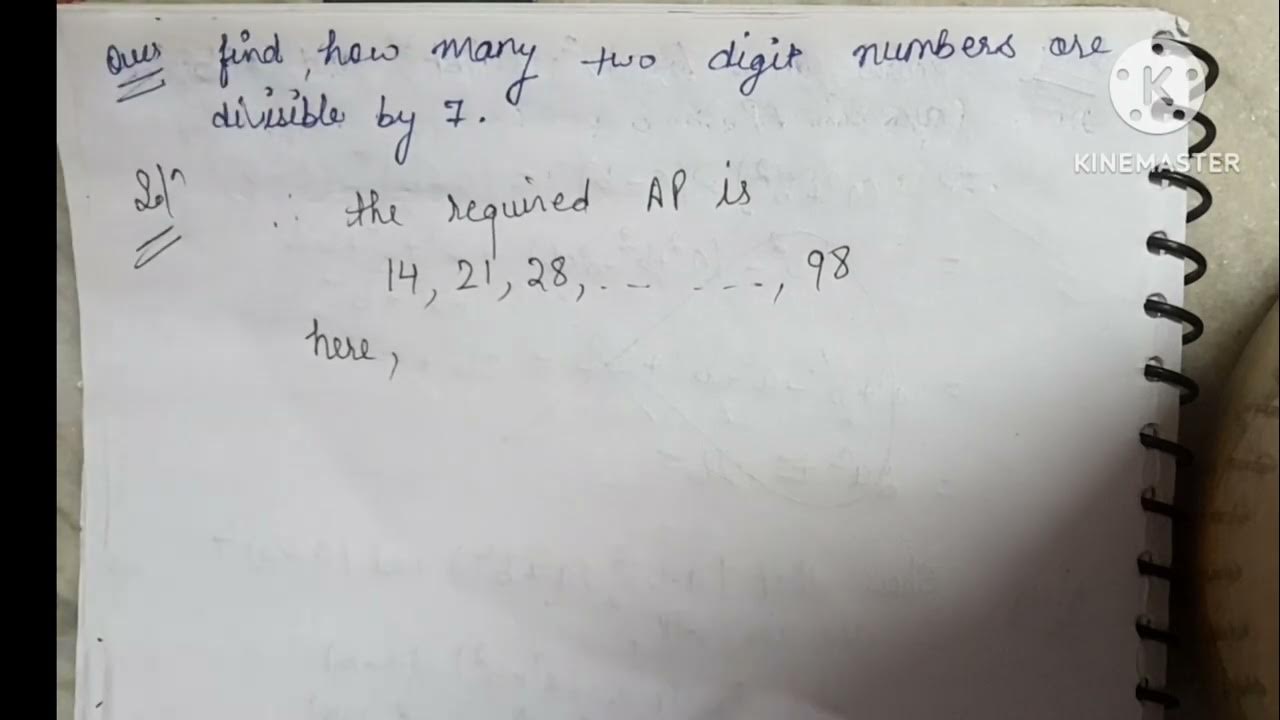 Ques find, how many two digit numbers are
divisible by 7.
K
KINEMASTER
Solⁿ
∴ the required AP is
14, 21, 28, .-- ---, 98
here,